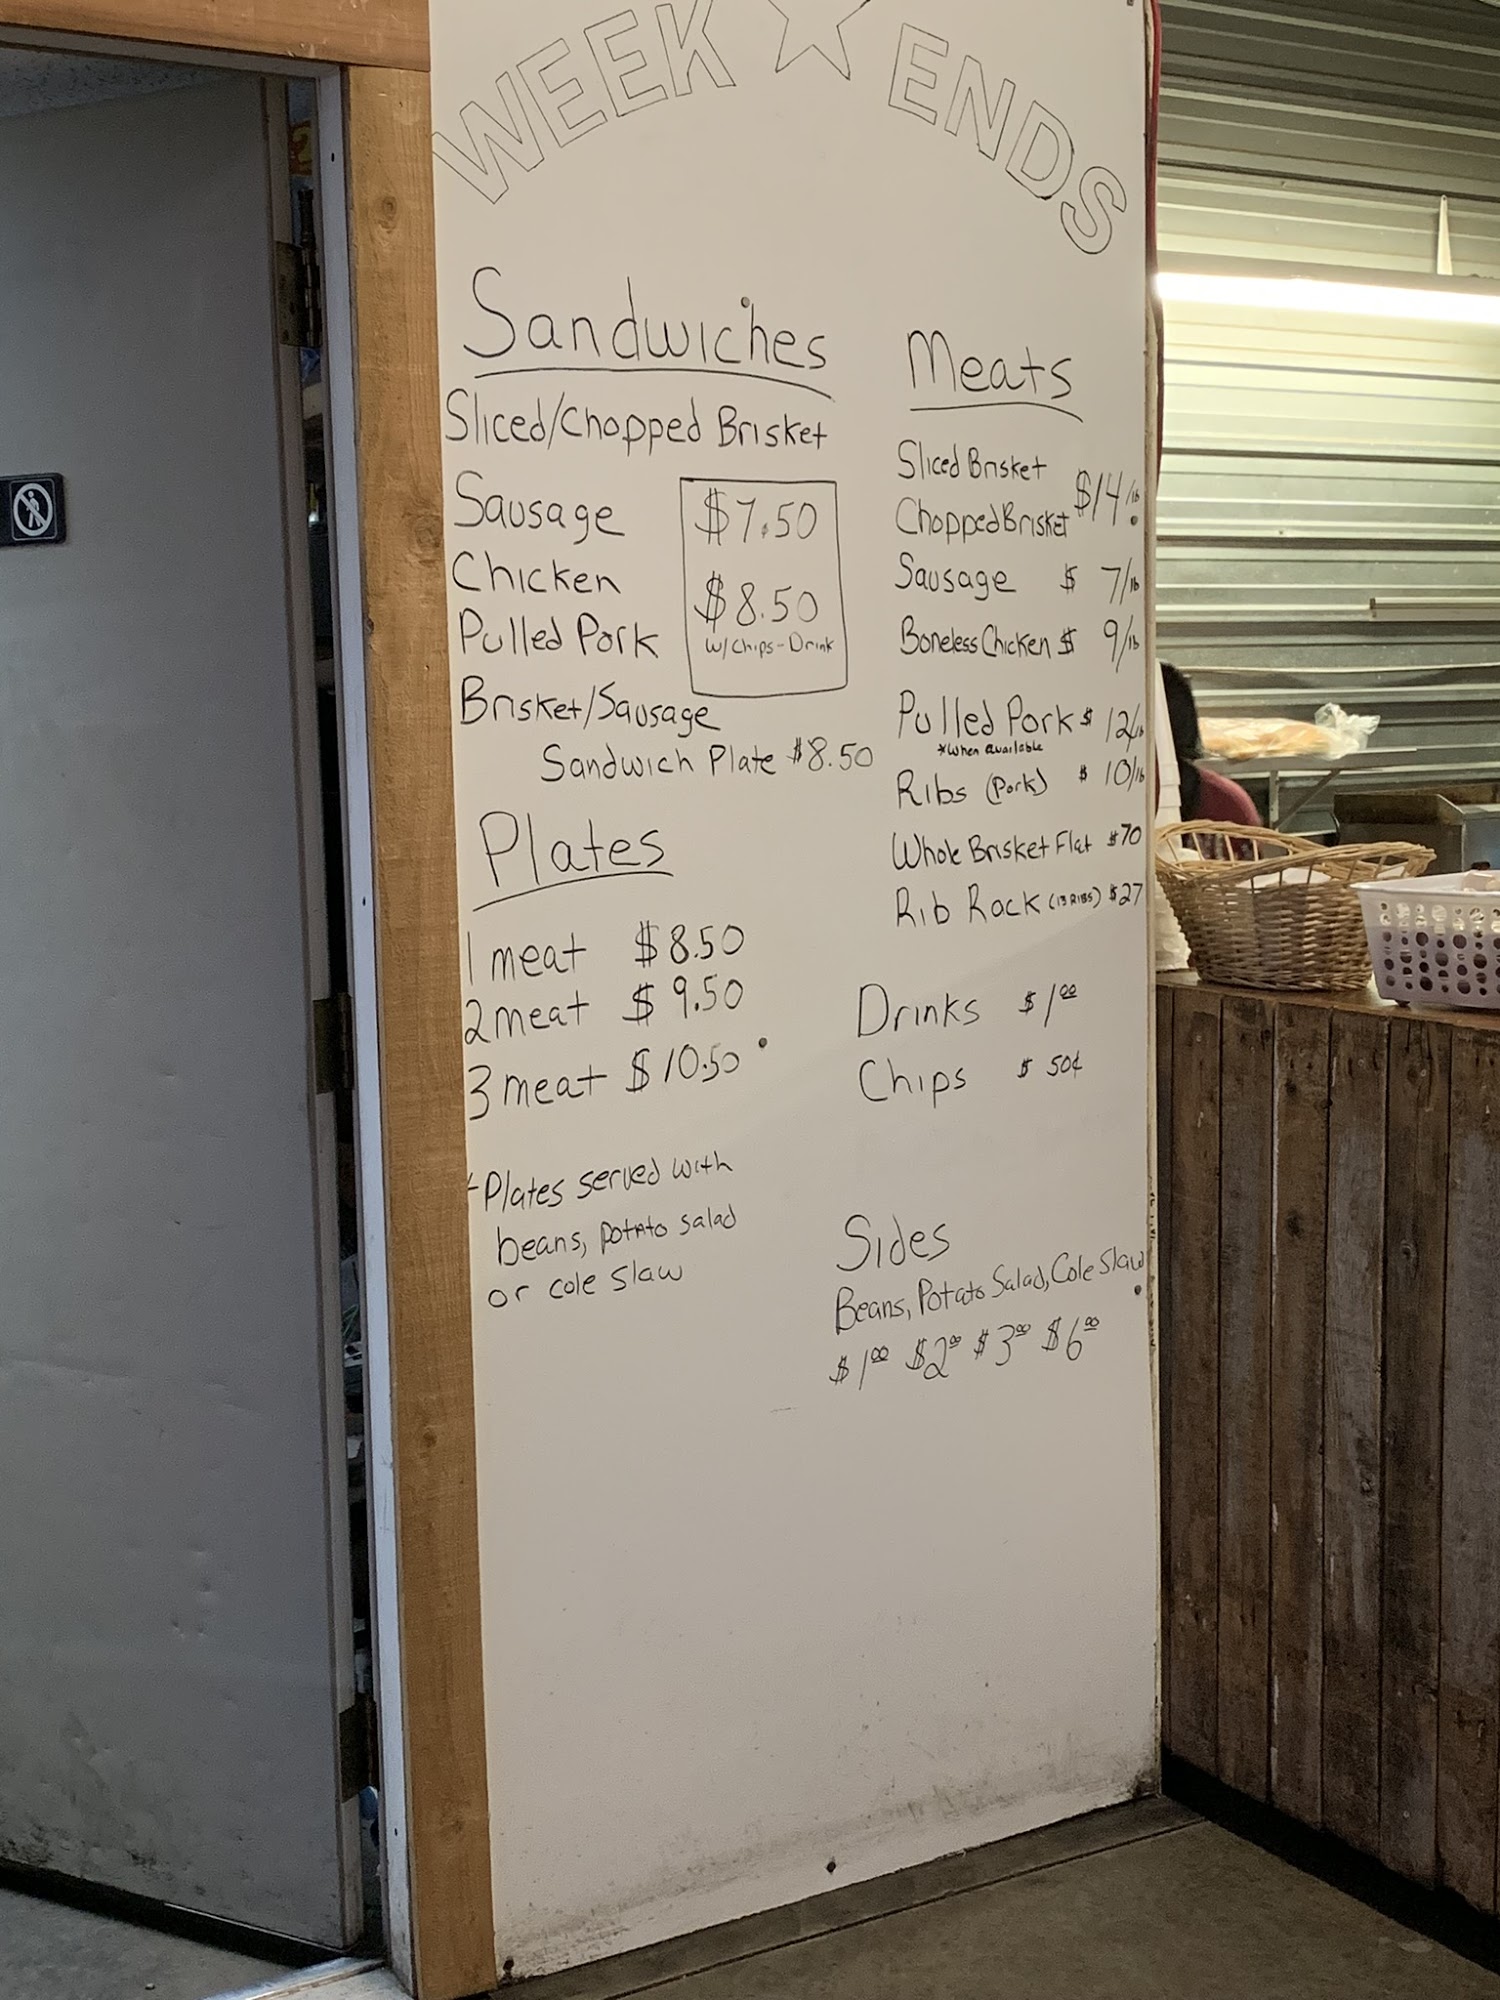 WEEK ENDS
Sandwiches
Sliced/Chopped Brisket
Sausage
Chicken
Pulled Pork
Brisket/Sausage
$7.50
$8.50
w/Chips-Drink
Sandwich Plate $8.50
Plates
1 meat $8.50
2 meat $9.50
3 meat $10.50
*Plates served with
beans, potato salad
or cole slaw
Meats
Sliced Brisket
Chopped Brisket $14/lb
Sausage $ 7/lb
Boneless Chicken $ 9/lb
Pulled Pork $ 12/lb
*When available
Ribs (Pork) $ 10/lb
Whole Brisket Flat $70
Rib Rack (13 RIBS) $27
Drinks $1.00
Chips $ 50¢
Sides
Beans, Potato Salad, Cole Slaw
$1.00 $2.00 $3.00 $6.00